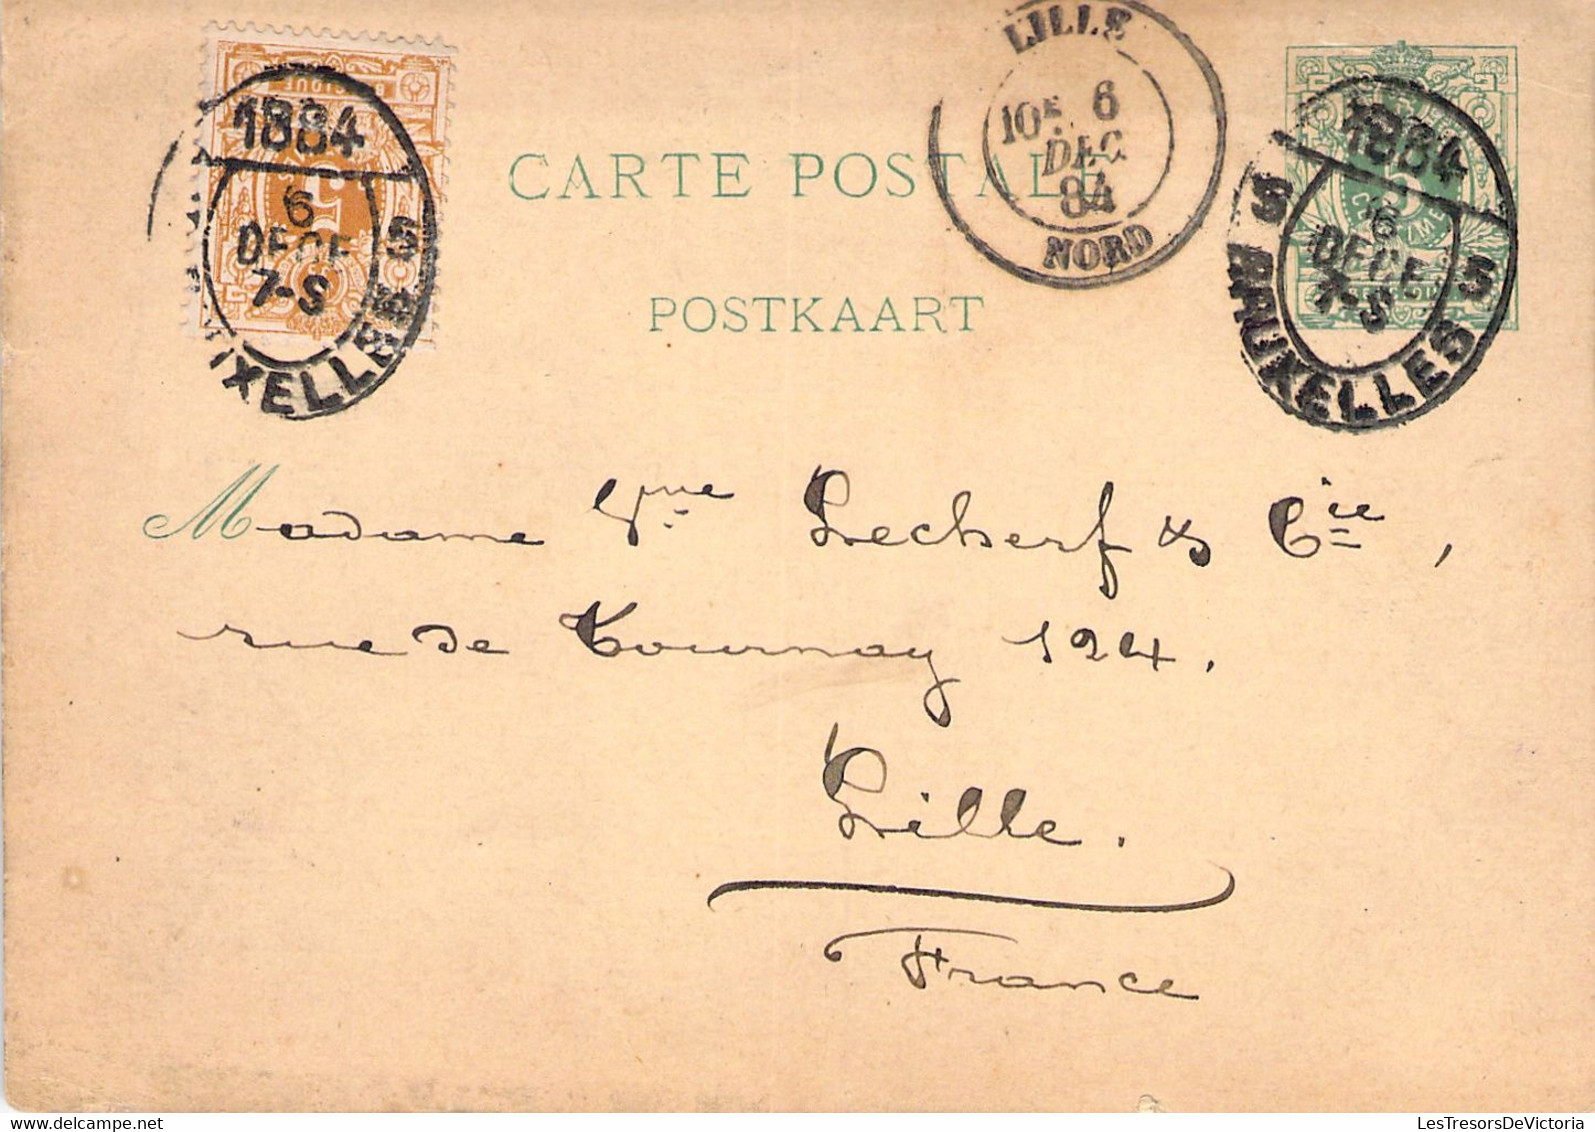 1884
6
DECE
7-S
5
UXELLES
LILLE
10E 6
DEC
84
NORD
1884
6
DECE
7-S
5 5
BRUXELLES
CARTE POSTALE
POSTKAART
Madame Vve Lecherf & Cie,
rue de Tournay 124.
Lille.
France
LesTresorsDeVictoria